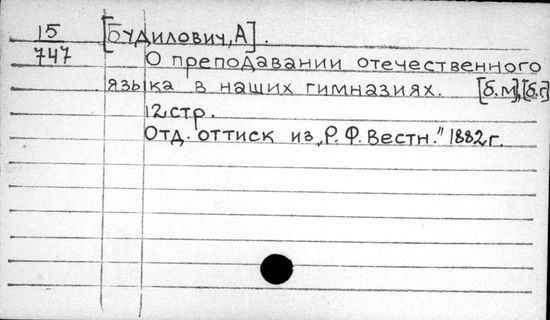 15
747
[Будилович, А].
О преподавании отечественного
языка в наших гимназиях. [б.м], [б.г]
12 стр.
Отд. оттиск из „Р. Ф. Вестн." 1882 г.